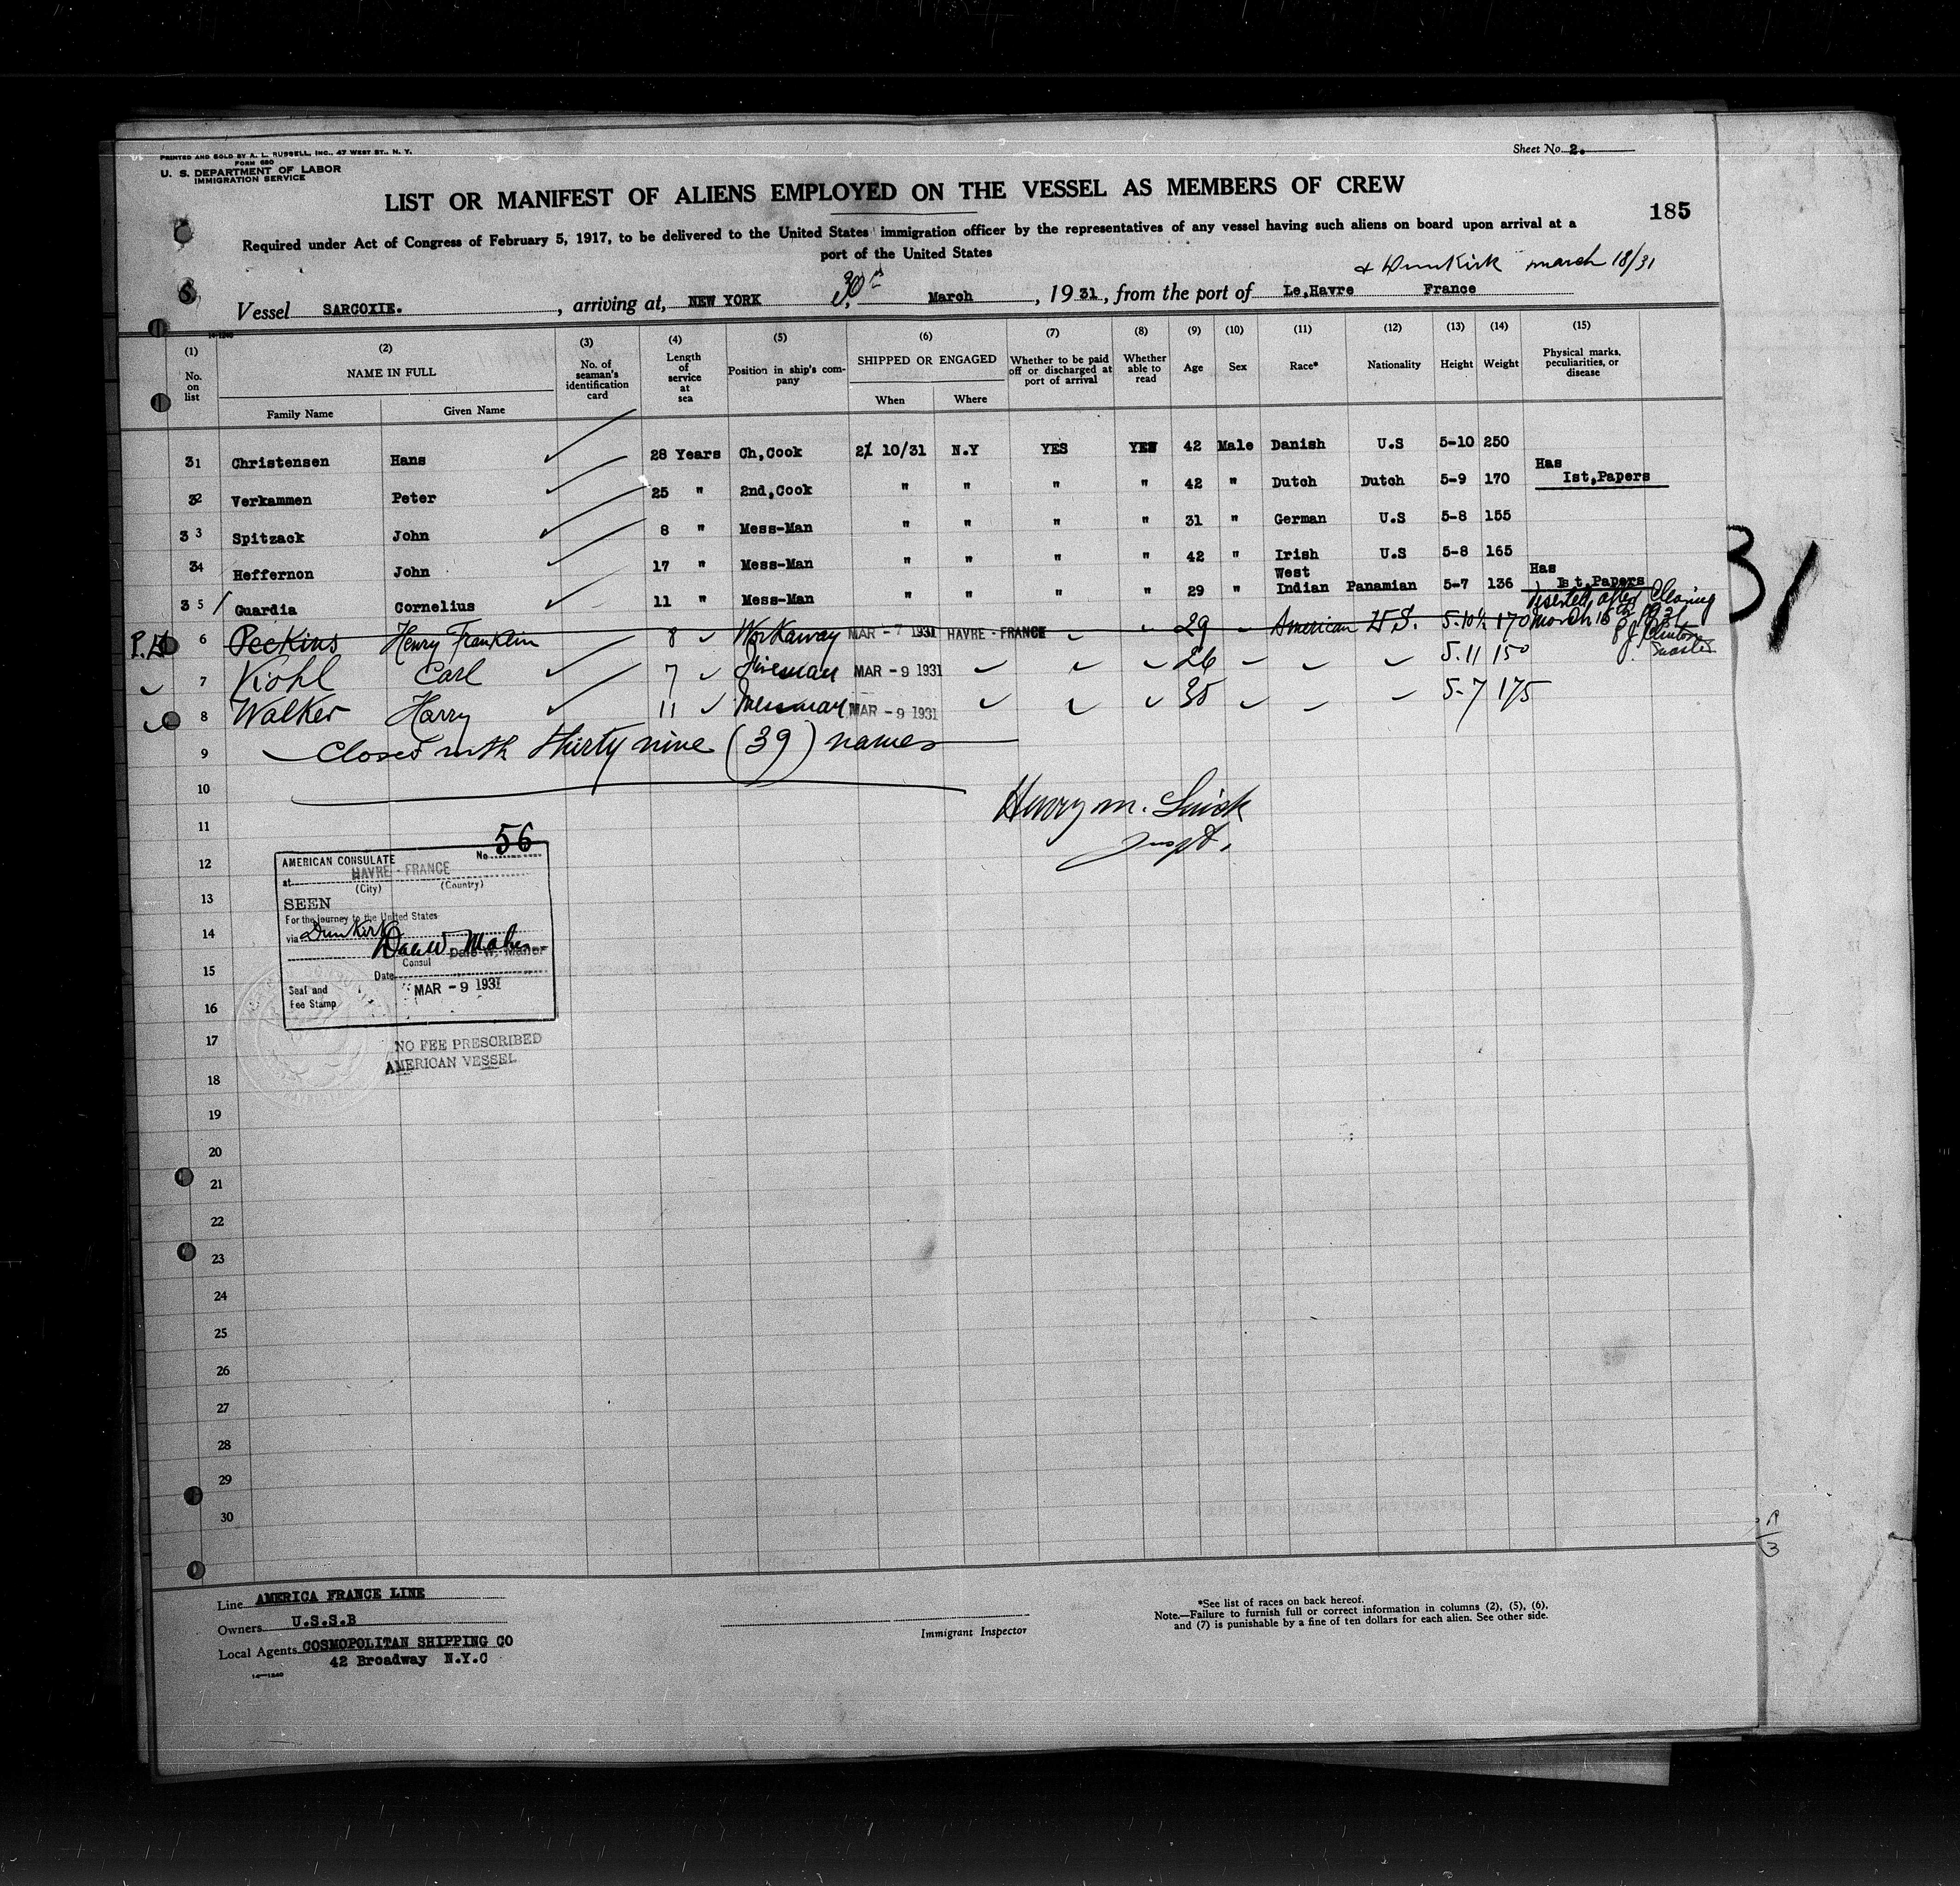 PRINTED AND SOLD BY A. L. RUSSELL, INC., 47 WEST ST., N. Y.
FORM 680
U. S. DEPARTMENT OF LABOR
IMMIGRATION SERVICE
Sheet No. 2.
LIST OR MANIFEST OF ALIENS EMPLOYED ON THE VESSEL AS MEMBERS OF CREW
185
Required under Act of Congress of February 5, 1917, to be delivered to the United States immigration officer by the representatives of any vessel having such aliens on board upon arrival at a
port of the United States
& Dunkirk march 18/31
Vessel SARCOXIE. , arriving at, NEW YORK 30th March , 19 31 , from the port of Le,Havre France
14-1240
(1) (2) (3) (4) (5) (6) (7) (8) (9) (10) (11) (12) (13) (14) (15)
No. on list NAME IN FULL Family Name Given Name No. of seaman's identification card Length of service at sea Position in ship's company SHIPPED OR ENGAGED When Where Whether to be paid off or discharged at port of arrival Whether able to read Age Sex Race* Nationality Height Weight Physical marks, peculiarities, or disease
31 Christensen Hans 28 Years Ch,Cook 2/ 10/31 N.Y YES YES 42 Male Danish U.S 5-10 250
32 Verkammen Peter 25 " 2nd,Cook " " " " 42 " Dutch Dutch 5-9 170 Has Ist,Papers
33 Spitzack John 8 " Mess-Man " " " " 31 " German U.S 5-8 155
34 Heffernon John 17 " Mess-Man " " " " 42 " Irish U.S 5-8 165
35 Guardia Cornelius 11 " Mess-Man " " " " 29 " West Indian Panamian 5-7 136 Has 1st,Papers
6 Peckins Henry Franklin 8 Workaway MAR - 7 1931 HAVRE - FRANCE 29 American U.S. 5-10½ 170 deserted after Clearing March 15th 1931
7 Kohl Carl 7 Fireman MAR - 9 1931 26 5.11 150
8 Walker Harry 11 Messman MAR - 9 1931 35 5-7 175
9 Closed with thirty nine (39) names
10
Henry M.
11
Inspt.
12
13
14
15
16
17
18
19
20
21
22
23
24
25
26
27
28
29
30
31
No. 56
AMERICAN CONSULATE
at HAVRE - FRANCE
(City) (Country)
SEEN
For the journey to the United States
via Dunkirk
Dale W. Maher
Consul Dale W. Maher
Date MAR - 9 1931
Seal and
Fee Stamp
NO FEE PRESCRIBED
AMERICAN VESSEL
Line AMERICA FRANCE LINE
Owners U.S.S.B
Local Agents COSMOPOLITAN SHIPPING CO
42 Broadway N.Y.C
14-1240
Immigrant Inspector
*See list of races on back hereof.
Note.—Failure to furnish full or correct information in columns (2), (5), (6),
and (7) is punishable by a fine of ten dollars for each alien. See other side.